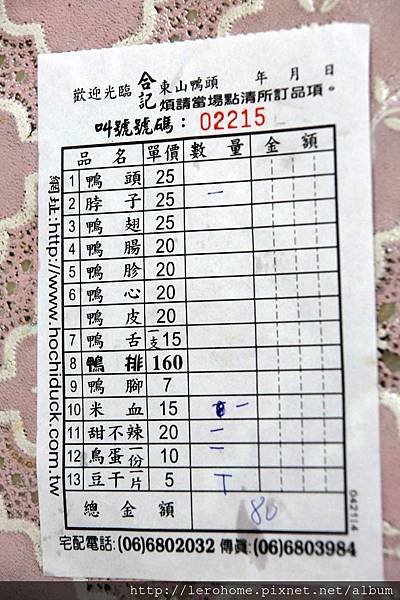 歡迎光臨 合記 東山鴨頭 年 月 日
煩請當場點清所訂品項。
叫號號碼：02215
品名 單價 數量 金額
1 鴨頭 25
2 脖子 25 一
3 鴨翅 25
4 鴨腸 20
5 鴨胗 20
6 鴨心 20
鴨皮 20
7 鴨舌 一支 15
8 鴨排 160
9 鴨腳 7
10 米血 15 一
11 甜不辣 20 一
12 鳥蛋 一份 10 一
13 豆干 一片 5 T
總金額 80
宅配電話:(06)6802032 傳真:(06)6803984
網址:http://www.hochiduck.com.tw
042114
http://lerohome.pixnet.net/album